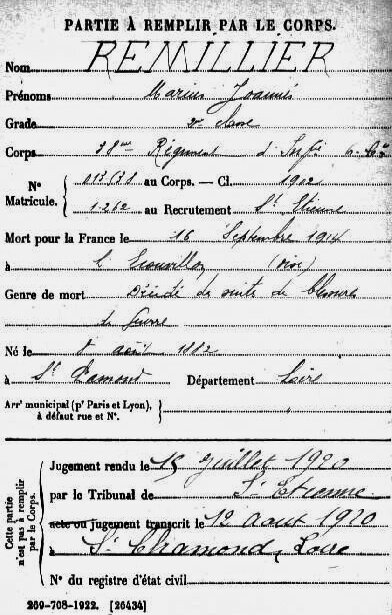 PARTIE À REMPLIR PAR LE CORPS.
Nom REMILLIER
Prénoms Marius Joannès
Grade 2e
Corps 38me Régiment d'Infie
N° Matricule. au Corps. — Cl. 1902
1.262 au Recrutement St Etienne
Mort pour la France le 16 Septembre 1914
à (Oise)
Genre de mort Décédé de suites de Blessures
de Guerre
Né le 8 août 1882
à St Chamond Département Loire
Arrt municipal (pr Paris et Lyon), à défaut rue et N°.
Cette partie n'est pas à remplir par le Corps.
Jugement rendu le 15 Juillet 1920
par le Tribunal de St Etienne
acte ou jugement transcrit le 12 août 1920
à St Chamond, Loire
N° du registre d'état civil
269-708-1922. [26434]